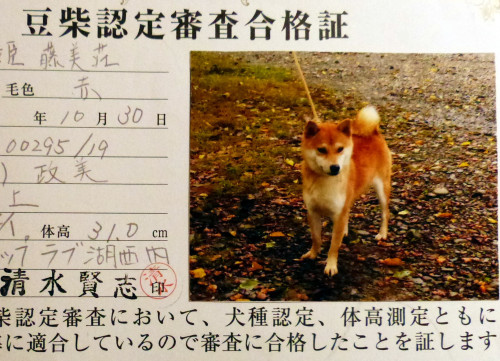 豆柴認定審査合格証
姫 藤美荘
毛色 赤
年 10月 30日
00295/19
) 政美
上
体高 31.0 cm
ラブ 湖西内
清水賢志 印
柴認定審査において、犬種認定、体高測定ともに
に適合しているので審査に合格したことを証します